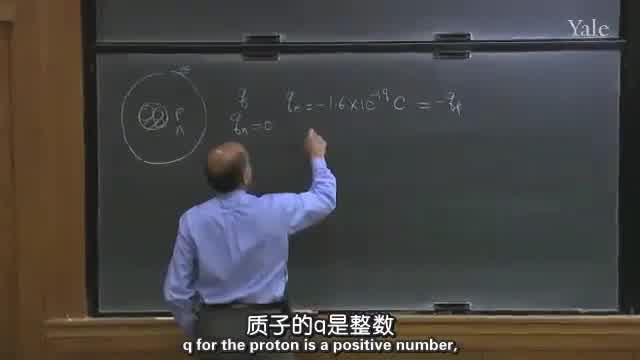 Yale
q qₑ = -1.6 × 10⁻¹⁹ C = -qₚ
P
qₙ = 0
n
质子的q是整数
q for the proton is a positive number,